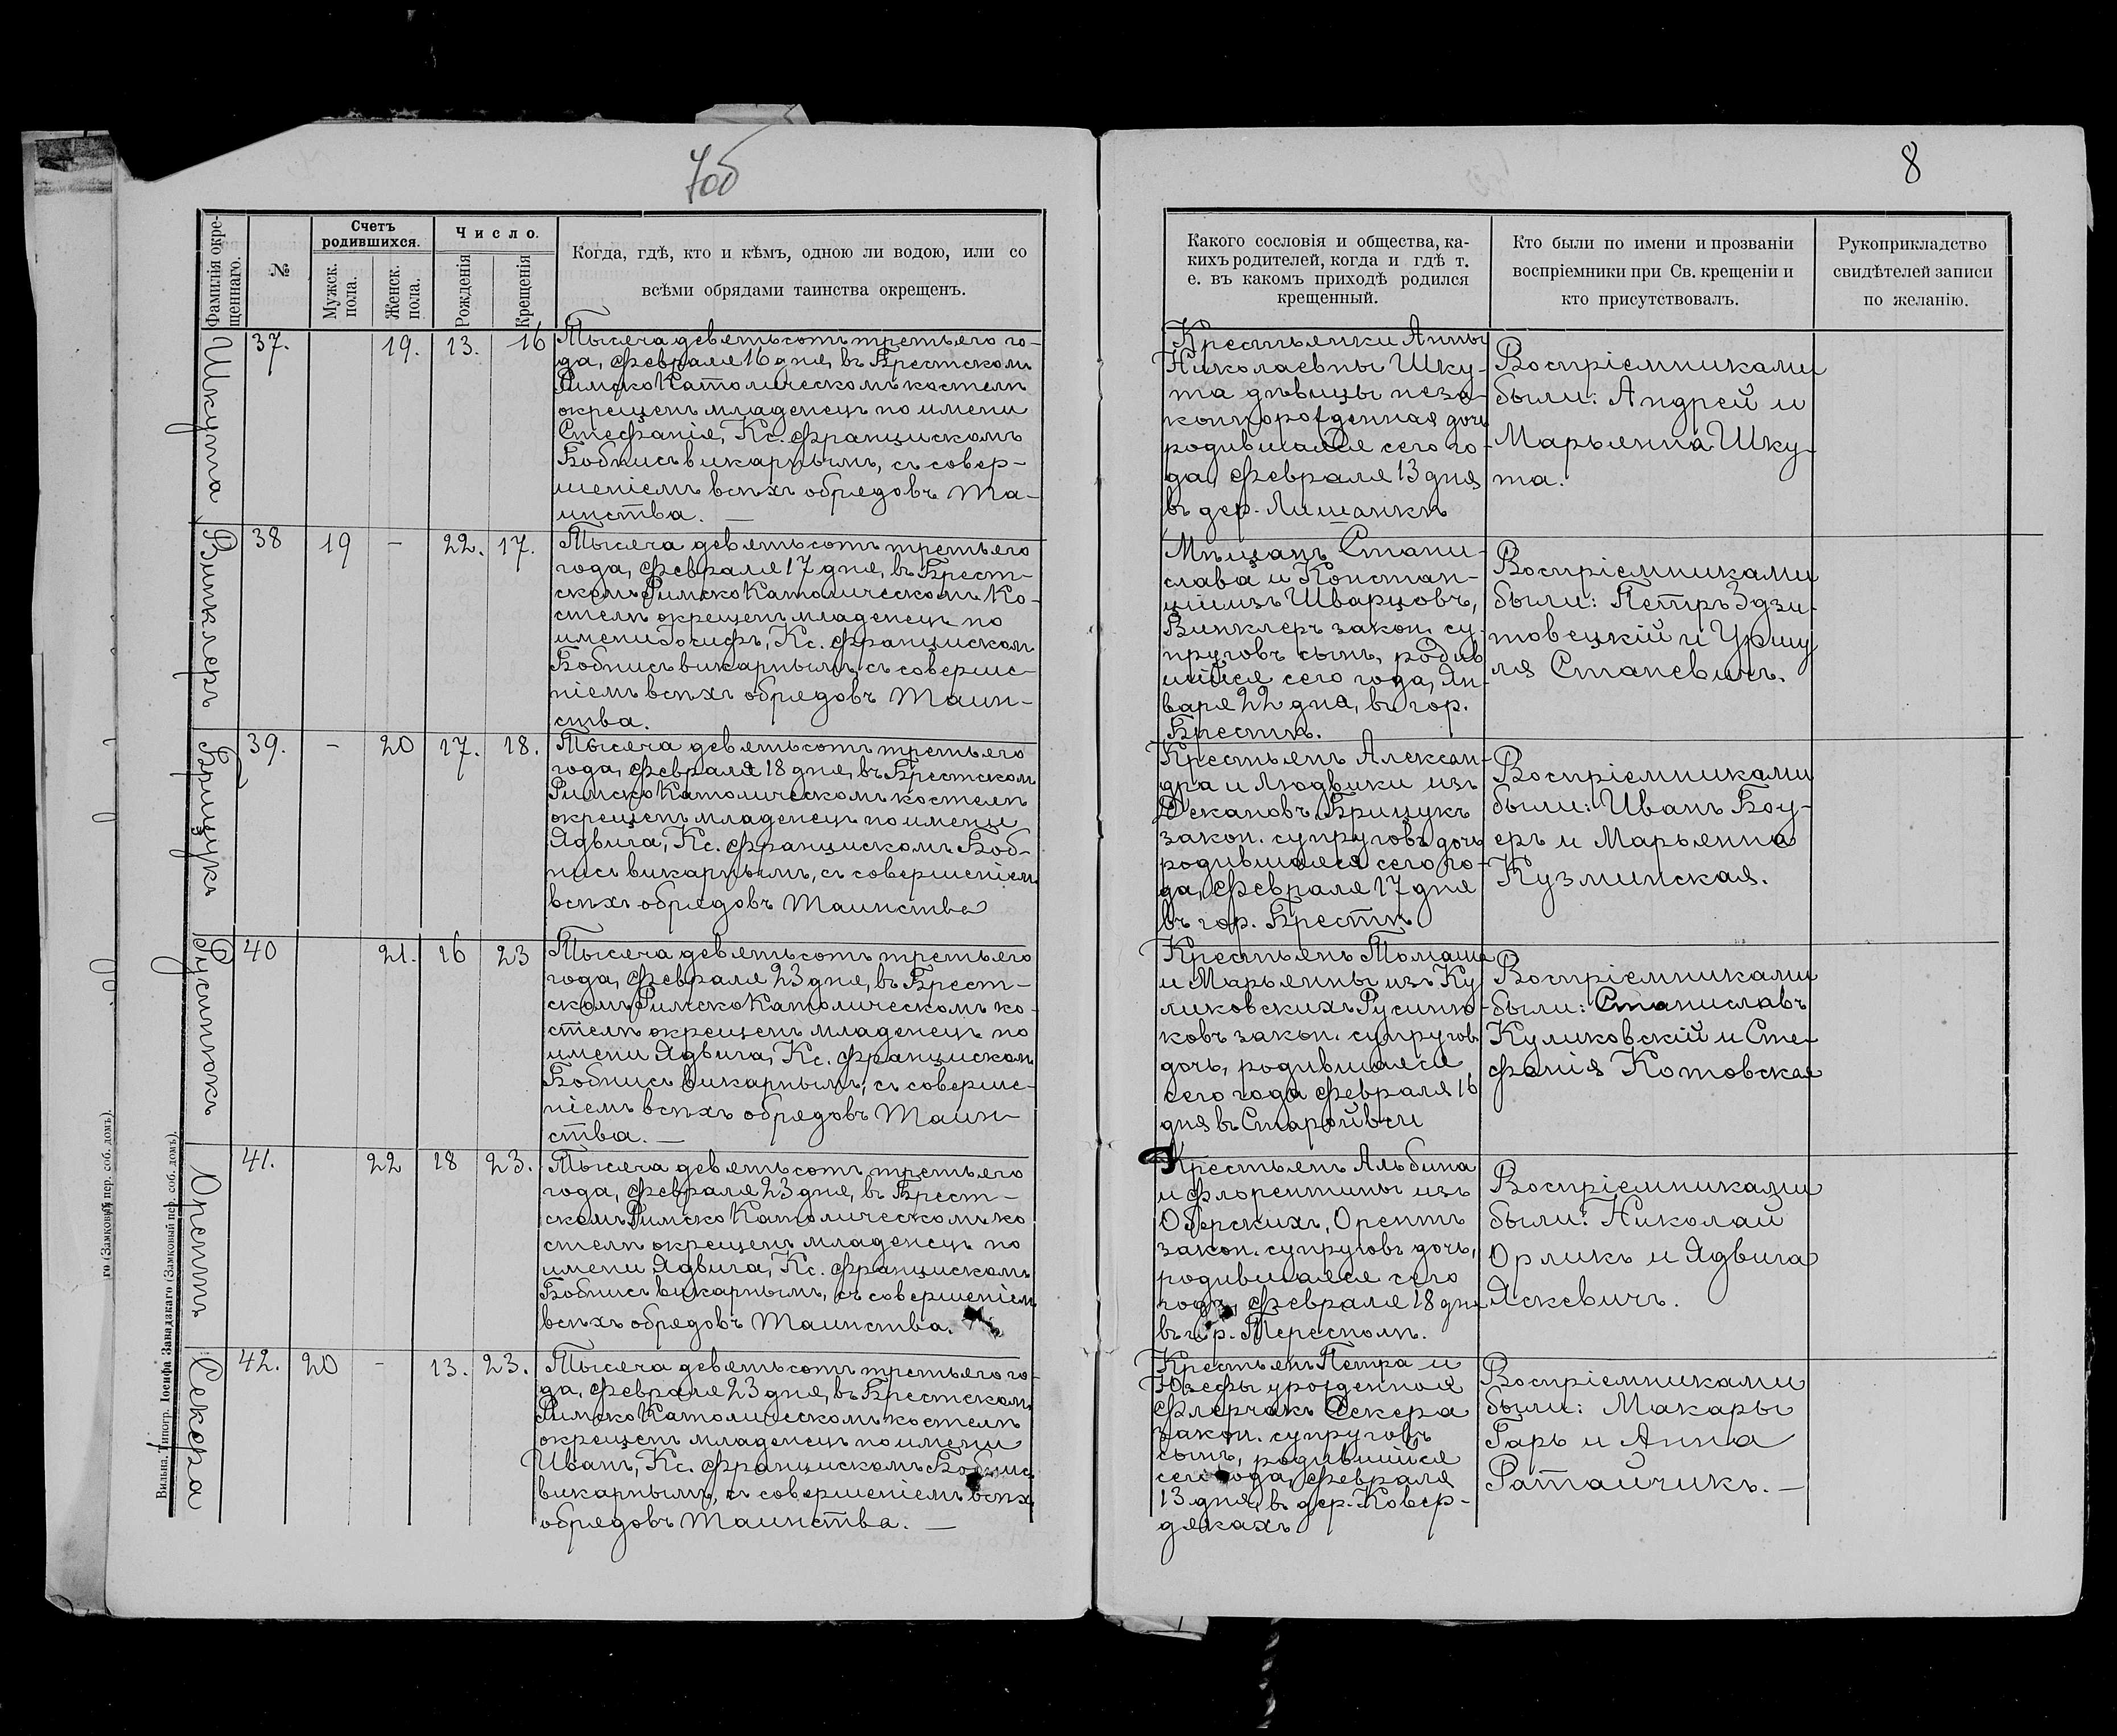 7об
8
Фамилія окре-
щеннаго.
№
Счетъ
родившихся.
Мужск.
пола.
Женск.
пола.
Число.
Рожденія
Крещенія
Когда, гдѣ, кто и кѣмъ, одною ли водою, или со
всѣми обрядами таинства окрещенъ.
Какого сословія и общества, ка-
кихъ родителей, когда и гдѣ т.
е. въ какомъ приходѣ родился
крещенный.
Кто были по имени и прозваніи
воспріемники при Св. крещеніи и
кто присутствовалъ.
Рукоприкладство
свидѣтелей записи
по желанію.
Шкута
37.
19.
13.
16
Тысяча девятьсотъ третьяго го-
да, февраля 16 дня, въ Брестскомъ
РимскоКатолическомъ костелѣ
окрещенъ младенецъ по имени
Стефанія, Кс. Францискомъ
Бобнисъ викарнымъ, съ совер-
шеніемъ всѣхъ обрядовъ Та-
инства. —
Крестьянки Анны
Николаевны Шку-
та дѣвицы неза-
коннорожденная дочь
родившаяся сего го-
да, февраля 13 дня
въ дер. Лишанкѣ
Воспріемниками
были: Андрей и
Марьянна Шку-
та.
Винклеръ
38
19
-
22.
17.
Тысяча девятьсотъ третьяго
года, февраля 17 дня, въ Брест-
скомъ РимскоКатолическомъ Ко-
стелѣ окрещенъ младенецъ по
имени Іосифъ, Кс. Францискомъ
Бобнисъ викарнымъ, съ соверше-
ніемъ всѣхъ обрядовъ Таин-
ства.
Мѣщанъ Стани-
слава и Констан-
ціи изъ Шварцовъ,
Винклеръ закон. су-
пруговъ сынъ, родив
шійся сего года, Ян-
варя 22 дня, въ гор.
Брестѣ.
Воспріемниками
были: Петръ Здзи-
товецкій и Уршу
ля Станевичъ.
Брицукъ
39.
-
20
17.
18.
Тысяча девятьсотъ третьяго
года, февраля 18 дня, въ Брестскомъ
РимскоКатолическомъ костелѣ
окрещенъ младенецъ по имени
Ядвига, Кс. Францискомъ Боб-
нисъ викарнымъ, съ совершеніемъ
всѣхъ обрядовъ Таинства
Крестьянъ Алексан-
дра и Людвики изъ
Декановъ Брицукъ
закон. супруговъ дочь
родившаяся сего го-
да, февраля 17 дня
въ гор. Брестѣ
Воспріемниками
были: Иванъ Боу-
еръ и Марьянна
Кузминская.
Русинюкъ
40
21.
16
23
Тысяча девятьсотъ третьяго
года, февраля 23 дня, въ Брест-
скомъ РимскоКатолическомъ ко-
стелѣ окрещенъ младенецъ по
имени Ядвига, Кс. Францискомъ
Бобнисъ викарнымъ, съ соверше-
ніемъ всѣхъ обрядовъ Таин-
ства. —
Крестьянъ Томаша
и Марьянны изъ Ку
ликовскихъ Русиню-
ковъ закон. супруговъ
дочь, родившаяся
сего года февраля 16
дня въ Старойвси
Воспріемниками
были: Станиславъ
Куликовскій и Сте-
фанія Котовская
Орептъ
41.
22
18
23.
Тысяча девятьсотъ третьяго
года, февраля 23 дня, въ Брест-
скомъ РимскоКатолическомъ ко
стелѣ окрещенъ младенецъ по
имени Ядвига, Кс. Францискомъ
Бобнисъ викарнымъ, съ совершеніемъ
всѣхъ обрядовъ Таинства.
Крестьянъ Альбина
и Флорентины изъ
Оберскихъ, Орептъ
закон. супруговъ дочь,
родившаяся сего
года, февраля 18 дня
въ гор. Тересполѣ.
Воспріемниками
были: Николай
Орликъ и Ядвига
Яскевичъ.
Секера
42.
20
-
13.
23.
Тысяча девятьсотъ третьяго го-
да, февраля 23 дня, въ Брестскомъ
РимскоКатолическомъ костелѣ
окрещенъ младенецъ по имени
Иванъ, Кс. Францискомъ Бобнисъ
викарнымъ, съ совершеніемъ всѣхъ
обрядовъ Таинства. —
Крестьянъ Петра и
Юзефы урожденной
Флерчакъ Секера
закон. супруговъ
сынъ, родившійся
сего года, февраля
13 дня, въ дер. Ковер-
дякахъ
Воспріемниками
были: Макары
Гарь и Анна
Ратайчикъ. —
Вильна, Типогр. Іосифа Завадзкаго (Замковый пер. соб. домъ).
го (Замковый пер. соб. домъ).